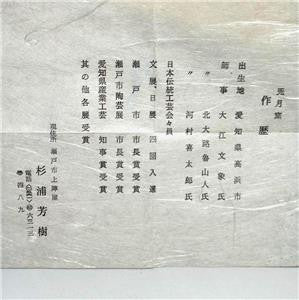 作歴
出生地 愛知県高浜市
師事 大江文象氏
〃 北大路魯山人氏
〃 河村喜太郎氏
日本伝統工芸会々員
文展、日展 四回入選
瀬戸市 市長賞受賞
瀬戸市陶芸展 市長賞受賞
愛知県産業工芸 知事賞受賞
其の他各展受賞
現住所 瀬戸市上陣屋
杉浦芳樹